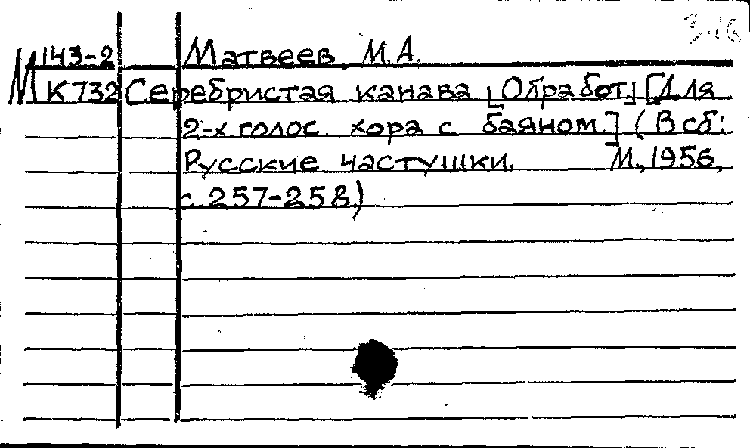 М 143-2 Матвеев М.А.
К732 Серебристая канава [Обработ] [Для
2-х голос. хора с баяном.] (В сб:
Русские частушки. М., 1956,
с. 257-258)